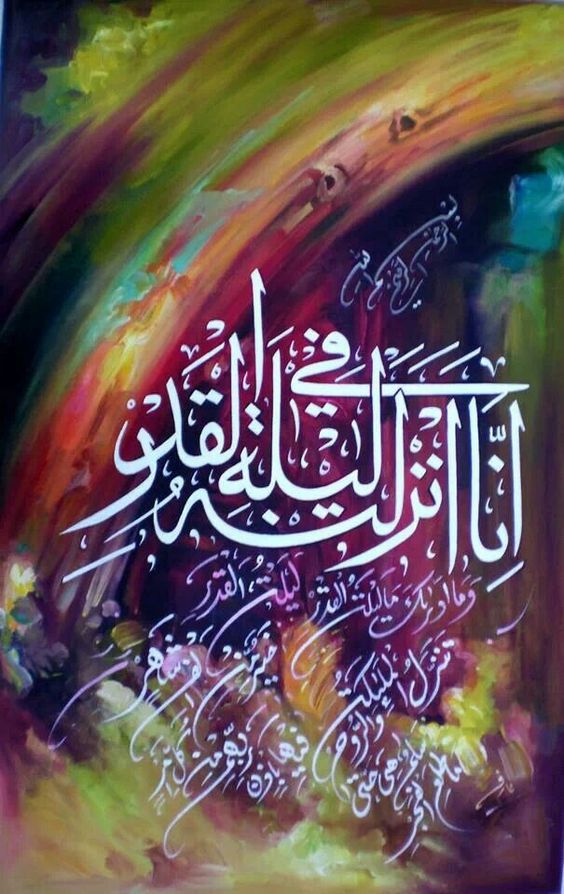 بسم الله الرحمن الرحيم
اِنَّا انزلنهُ في ليلة القدرِ
وما ادریك ما لیلة القدر لیلة القدر
خير من الف شهر
تنزل الملئكة والروح
فيها باذن ربهم من كل امر
سلم هي حتى مطلع الفجر